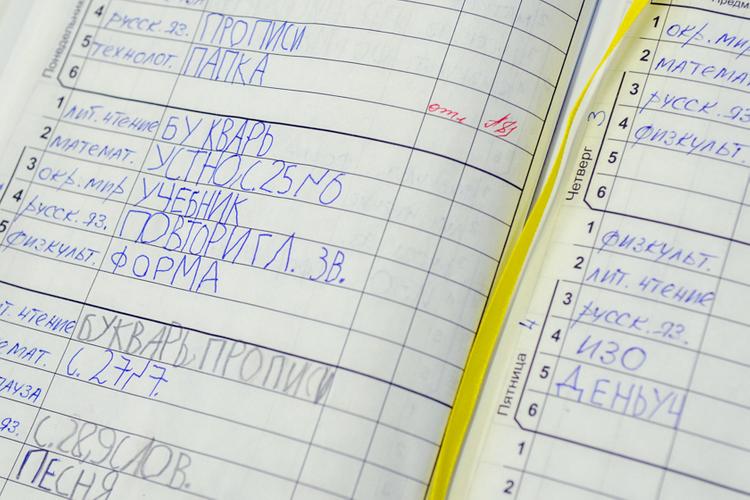 Понедельник
4 русск. яз. ПРОПИСИ
5 технолог. ПАПКА
6
1 лит. чтение БУКВАРЬ отл
2 математ. УСТНО С.25 №6
3 окр. мир УЧЕБНИК
4 русск. яз. ПОВТОРИ ГЛ. ЗВ.
5 физкульт. ФОРМА
т. чтение БУКВАРЬ, ПРОПИСИ
емат. С. 27 №7.
ауза
яз. С. 28, 9 СЛОВ.
ПЕСНЯ
1 окр. мир
2 матема
3 русск. яз.
4 физкульт
5
6
Четверг 3
1 физкульт.
2 лит. чтение
3 русск. яз.
4 ИЗО
5 ДЕНЬ УЧ
6
Пятница 4
1
2